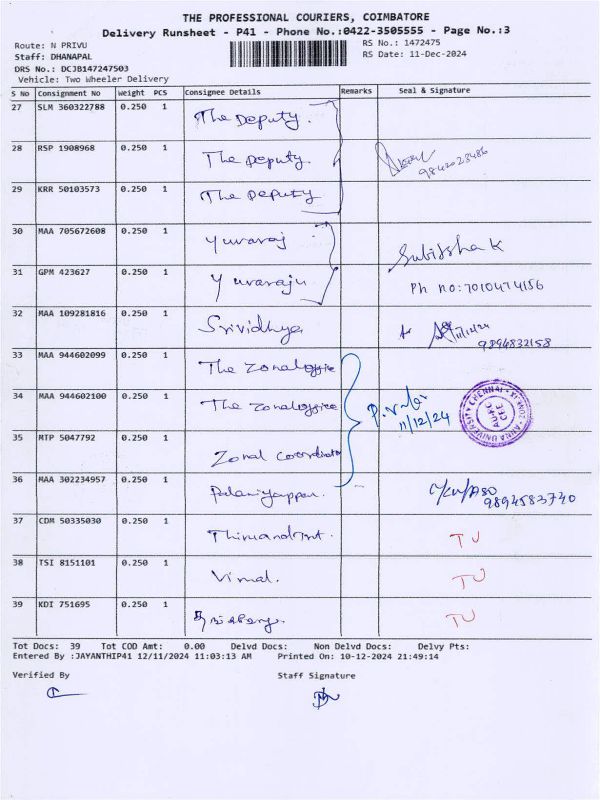 THE PROFESSIONAL COURIERS, COIMBATORE
Delivery Runsheet - P41 - Phone No.:0422-3505555 - Page No.:3
Route: N PRIVU
RS No.: 1472475
Staff: DHANAPAL
RS Date: 11-Dec-2024
DRS No.: DCJB147247503
Vehicle: Two Wheeler Delivery
S No Consignment No Weight PCS Consignee Details Remarks Seal & Signature
27 SLM 360322788 0.250 1 The Deputy.
28 RSP 1908968 0.250 1 The Deputy. 9842023486
29 KRR 50103573 0.250 1 The Deputy
30 MAA 705672608 0.250 1 Yuvaraj Subiksha K
31 GPM 423627 0.250 1 Yuvaraju Ph no: 7010474156
32 MAA 109281816 0.250 1 Srividhya 11/12/24
9894832158
33 MAA 944602099 0.250 1 The Zonal office
34 MAA 944602100 0.250 1 The Zonal office 11/12/24 ANNA UNIVERSITY CHENNAI
35 MTP 5047792 0.250 1 Zonal Coordinator
36 MAA 302234957 0.250 1 Palaniyappan. 9894583740
37 CDM 50335030 0.250 1 TU
38 TSI 8151101 0.250 1 Vimal. TU
39 KDI 751695 0.250 1 TU
Tot Docs: 39 Tot COD Amt: 0.00 Delvd Docs: Non Delvd Docs: Delvy Pts:
Entered By :JAYANTHIP41 12/11/2024 11:03:13 AM Printed On: 10-12-2024 21:49:14
Verified By Staff Signature